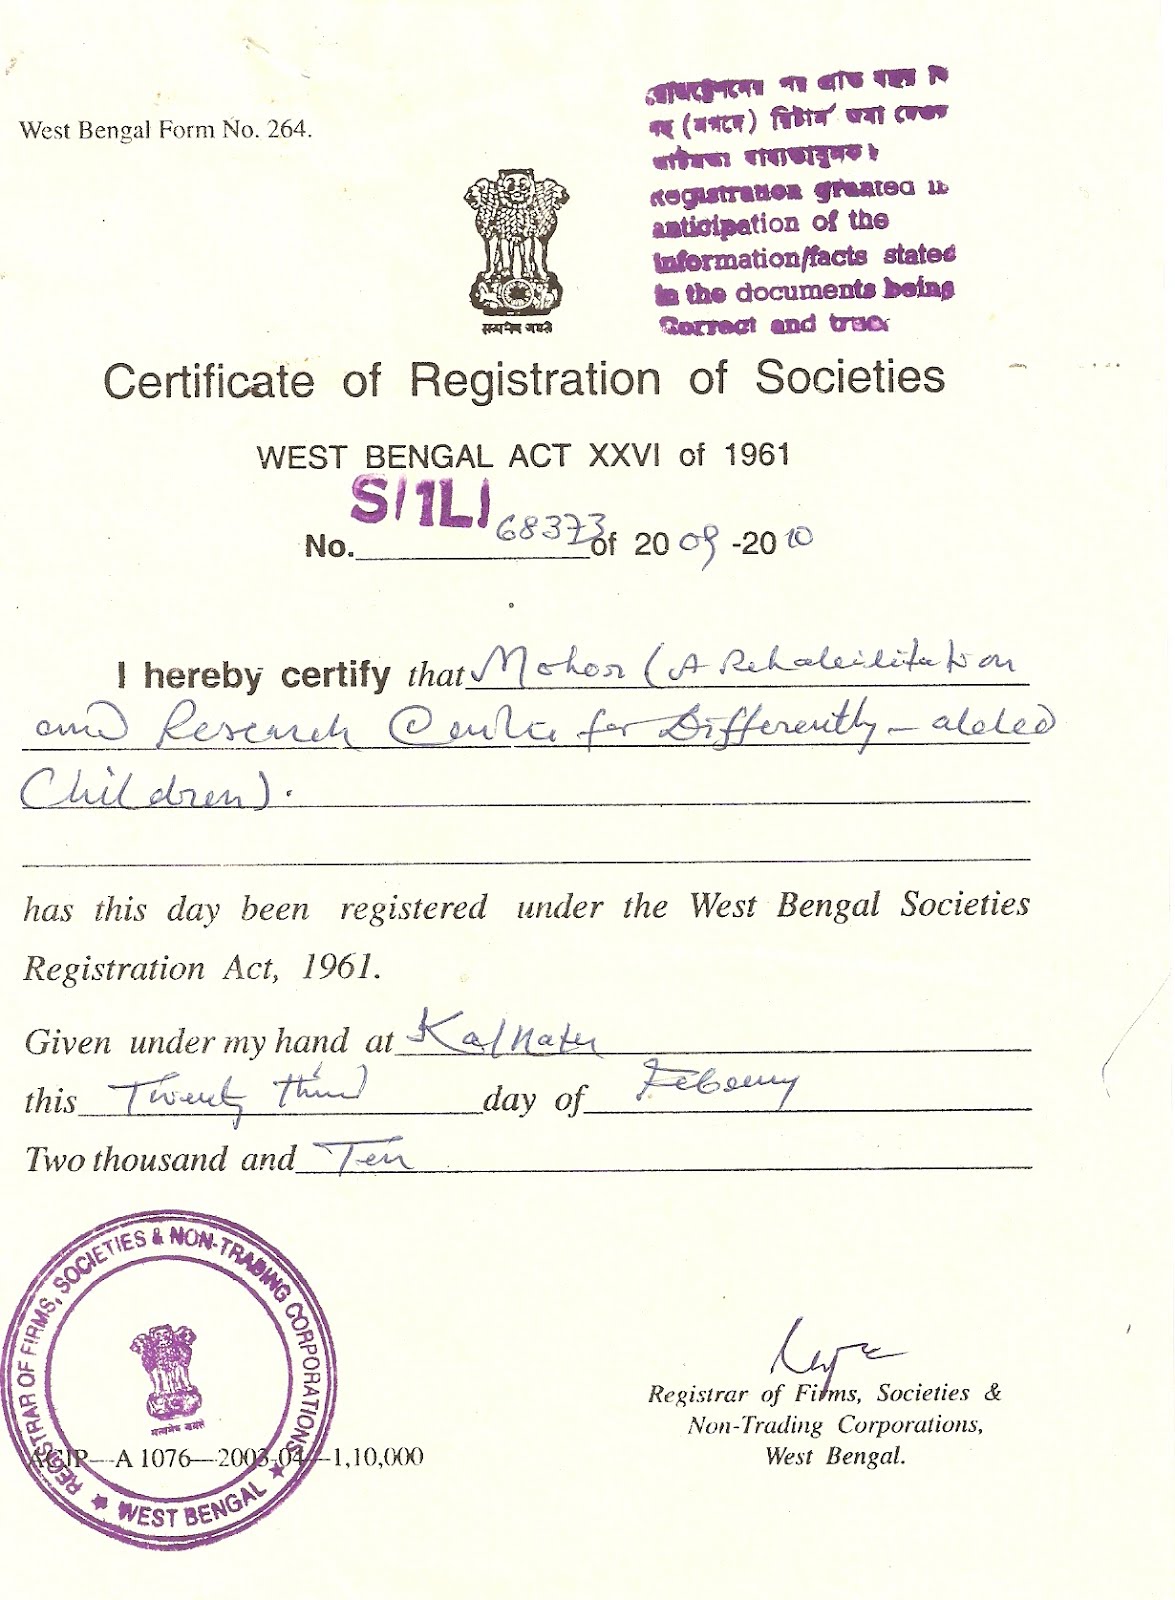 West Bengal Form No. 264.
রেজিষ্ট্রেশনের পর প্রতি বছর
(নগদে) রিটার্ন জমা দেওয়া
বাধ্যতামূলক।
Registration granted in
anticipation of the
information/facts stated
in the documents being
Correct and true
सत्यमेव जयते
Certificate of Registration of Societies
WEST BENGAL ACT XXVI of 1961
No. S/1L/ 68373 of 2009-2010
I hereby certify that Mohor (A Rehabilitation
and Research Centre for Differently-abled
Children).
has this day been registered under the West Bengal Societies
Registration Act, 1961.
Given under my hand at Kolkata
this Twenty third day of February
Two thousand and Ten
REGISTRAR OF FIRMS, SOCIETIES & NON-TRADING CORPORATIONS
सत्यमेव जयते
★ WEST BENGAL ★
Registrar of Firms, Societies &
Non-Trading Corporations,
West Bengal.
AGIP—A 1076—2003-04—1,10,000